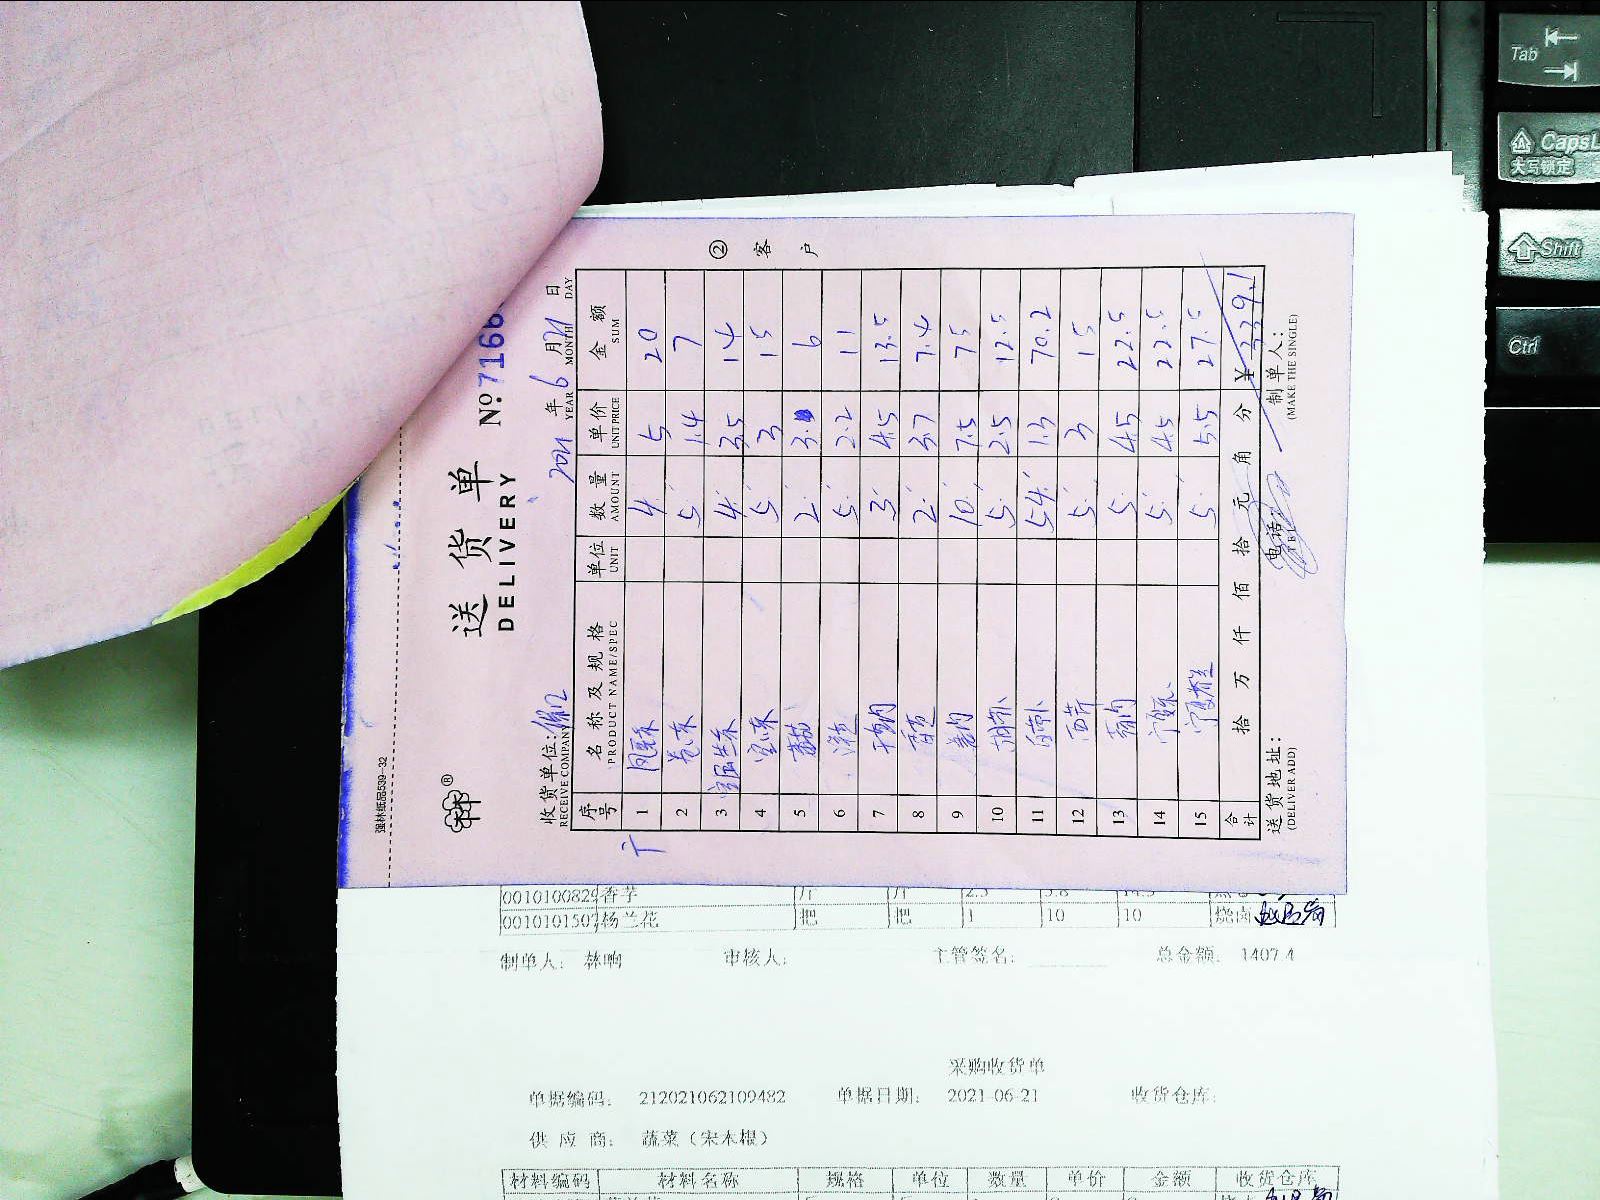 强林纸品539-32
送货单
DELIVERY
№.7166
收货单位:
RECEIVE COMPANY
2021 年 6 月 21 日
YEAR MONTH DAY
② 客户
序号 名称及规格 单位 数量 单价 金额
PRODUCT NAME/SPEC UNIT AMOUNT UNIT PRICE SUM
1 4 5 20
2 5 1.4 7
3 4 3.5 14
4 宝心菜 5 3 15
5 2 3 6
6 5 2.2 11
7 3 4.5 13.5
8 2 3.7 7.4
9 10 7.5 75
10 5 2.5 12.5
11 白萝卜 54 1.3 70.2
12 西芹 5 3 15
13 5 4.5 22.5
14 5 4.5 22.5
15 5 5.5 27.5
合计 拾 万 仟 佰 拾 元 角 分 ¥ 339.1
送货地址: 电话: 制单人:
(DELIVER ADD) TEL (MAKE THE SINGLE)
0010100829 香芋 斤 斤 2.5 5.8 14.5
0010101507 杨兰花 把 把 1 10 10 烧卤
制单人: 林响 审核人: 主管签名: 总金额: 1407.4
采购收货单
单据编码: 212021062109482 单据日期: 2021-06-21 收货仓库:
供应商: 蔬菜(宋本根)
材料编码 材料名称 规格 单位 数量 单价 金额 收货仓库
Tab
CapsL
大写锁定
Shift
Ctrl